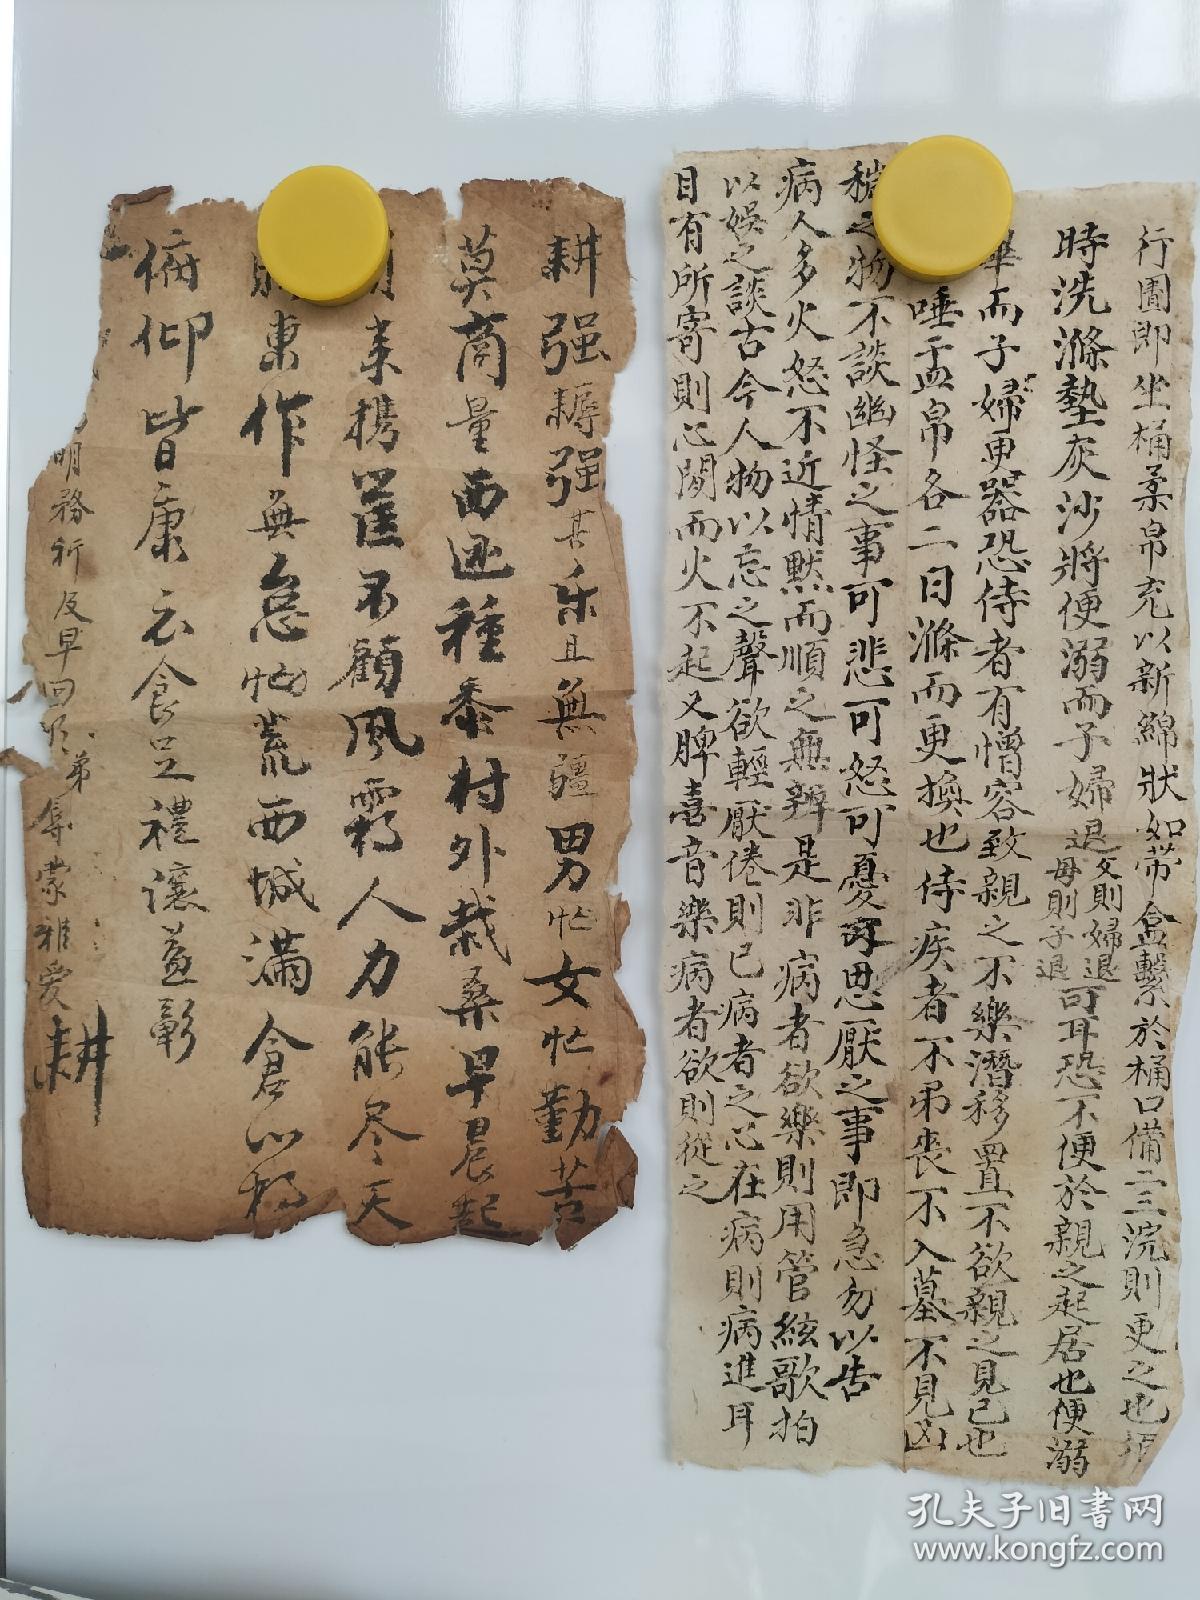 行圊即坐桶柔帛充以新綿狀如帶盒繫於桶口備二三浣則更之也
時洗滌墊灰沙將便溺而子婦退父則婦退母則子退可耳恐不便於親之起居也便溺
畢而子婦更器恐侍者有憎容致親之不樂潛移置不欲親之見已也
唾盂帛各二日滌而更換也侍疾者不弔喪不入墓不見凶
穢之物不談幽怪之事可悲可怒可憂可思厭之事即急勿以告
病人多火怒不近情默而順之無辨是非病者欲樂則用管絃歌拍
以娛之談古今人物以忘之聲欲輕厭倦則已病者之心在病則病進耳
目有所寄則心閑而火不起又脾喜音樂病者欲則從之
耕强耨强其乐且無疆男忙女忙勤苦
莫商量西迤種黍村外栽桑早晨起
來携筐不顧風霜人力能尽天
東作無怠忙荒西城滿倉心
俯仰皆康衣食足禮讓益彰
明務祈及早回 弟
蒙雅爱
耕
孔夫子旧书网
www.kongfz.com